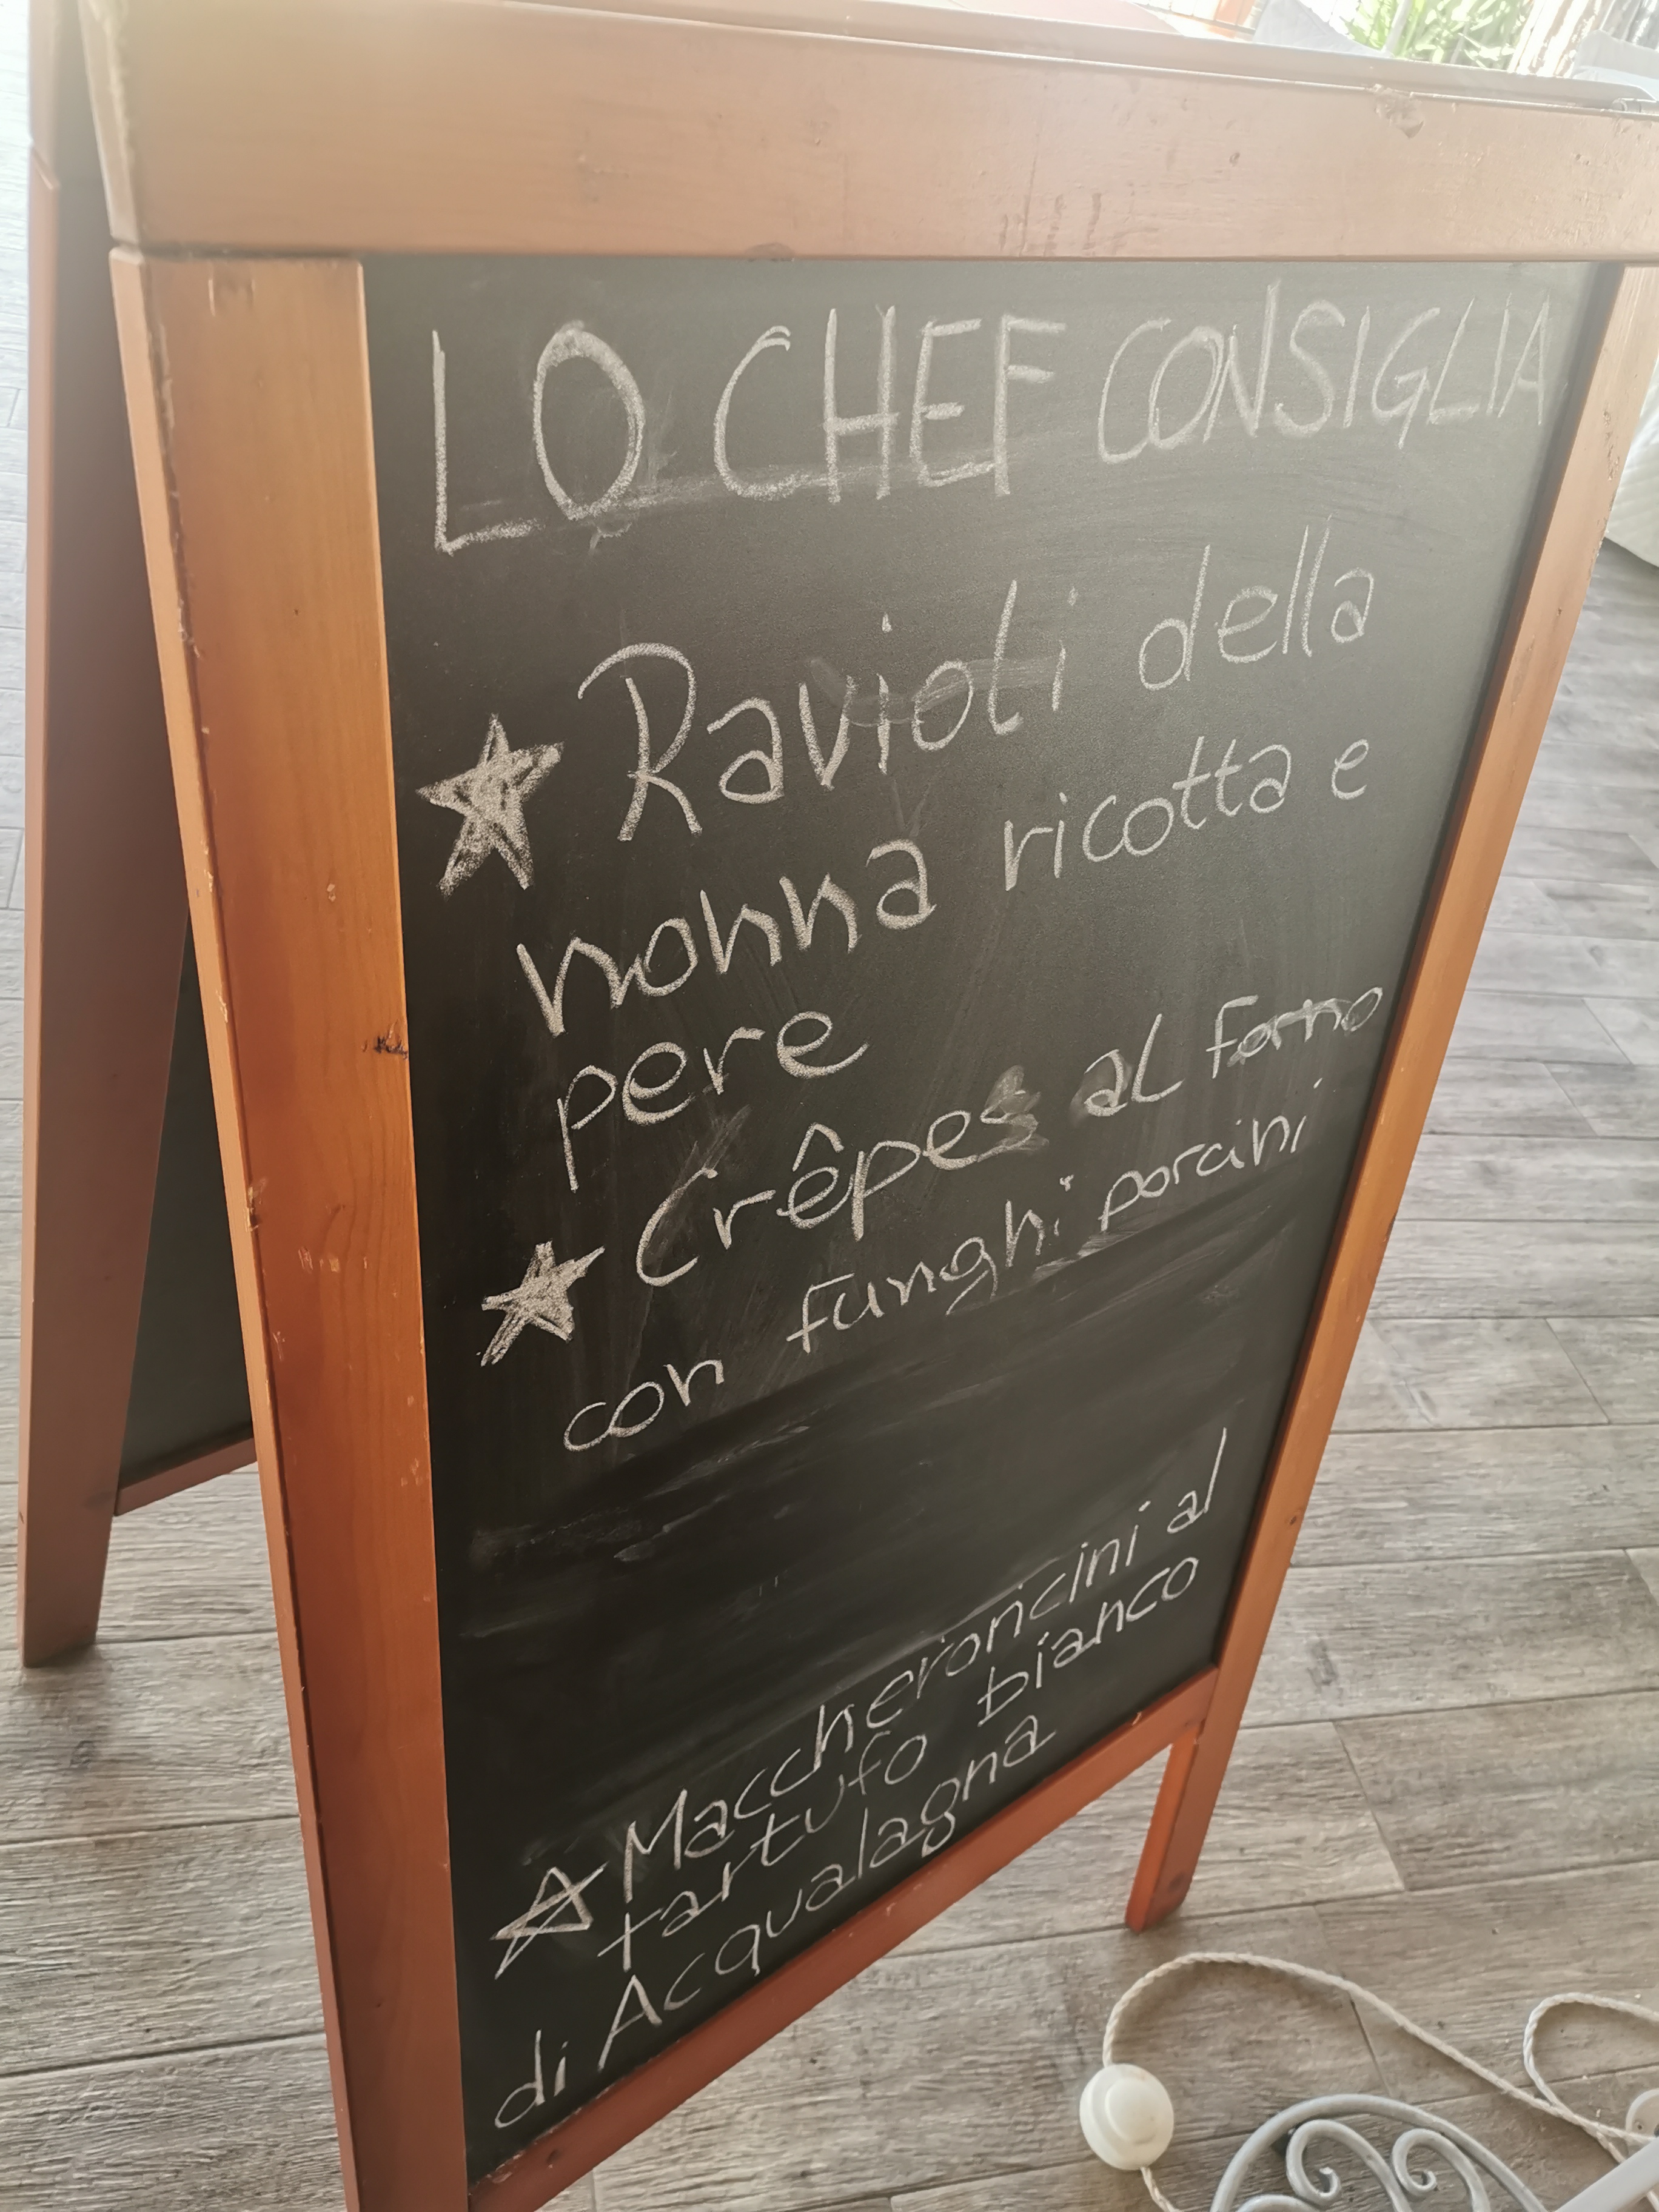 LO CHEF CONSIGLIA
Ravioli della
nonna ricotta e
pere
Crêpes al forno
con funghi porcini
Maccheroncini al
tartufo bianco
di Acqualagna